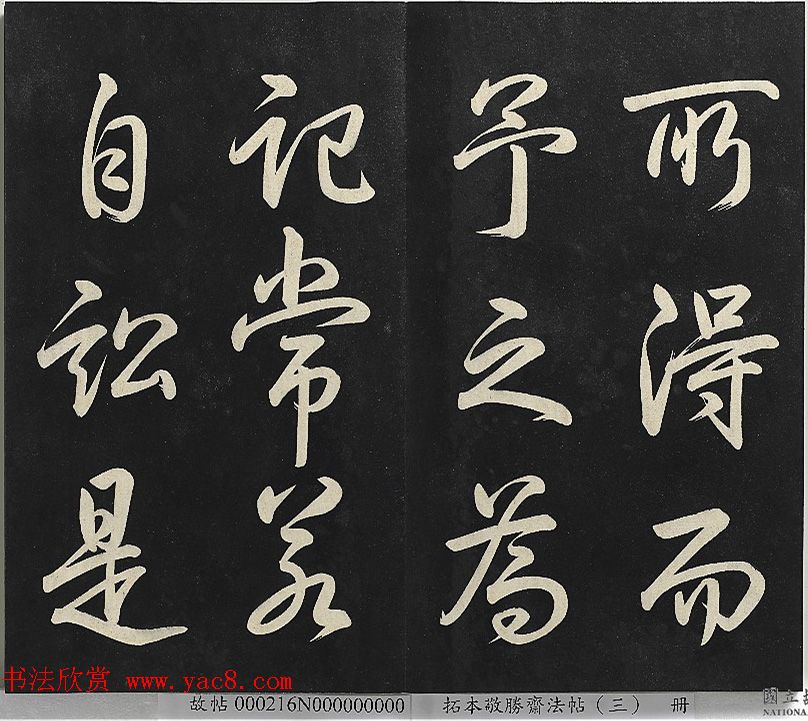 所得而
予之為
記常若
自訟是
书法欣赏 www.yac8.com
故帖 000216N000000000
拓本敬勝齋法帖（三） 册
國立
NATIONA